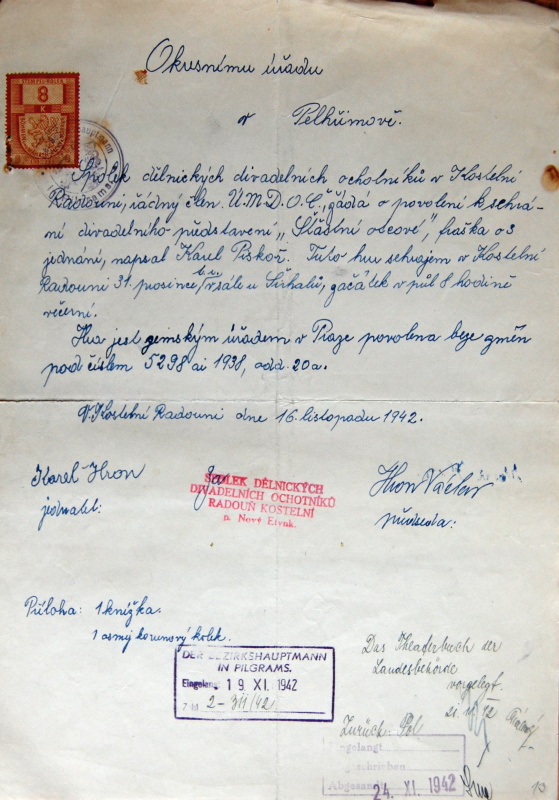 Okresnímu úřadu
v Pelhřimově.
8
K
Spolek dělnických divadelních ochotníků v Kostelní
Radouni, řádný člen Ú.M.D.O.Č., žádá o povolení k sehrá-
ní divadelního představení "Šťastní otcové", fraška o 3
jednání, napsal Karel Piskoř. Tuto hru sehrajem v Kostelní
Radouni 31. prosince t.r. v sále u Sirhalů, začátek v půl 8 hodině
večerní.
Hra jest zemským úřadem v Praze povolena beze změn
pod číslem 5298 ai 1938, odd. 20a.
V Kostelní Radouni dne 16. listopadu 1942.
Karel Hron
jednatel:
Za
SPOLEK DĚLNICKÝCH
DIVADELNÍCH OCHOTNÍKŮ
RADOUŇ KOSTELNÍ
p. Nová Etynk.
Hron Václav
předseda:
Příloha: 1 knížka.
1 osmy korunový kolek.
DER BEZIRKSHAUPTMANN
IN PILGRAMS.
Eingelangt 19 XI. 1942
Zahl 2-311/42
Das Theaterbuch der
Landesbehörde
vorgelegt.
21.11.42
Zurück: Pol
Eingelangt
Geschrieben
Abgesandt 24. XI. 1942
10